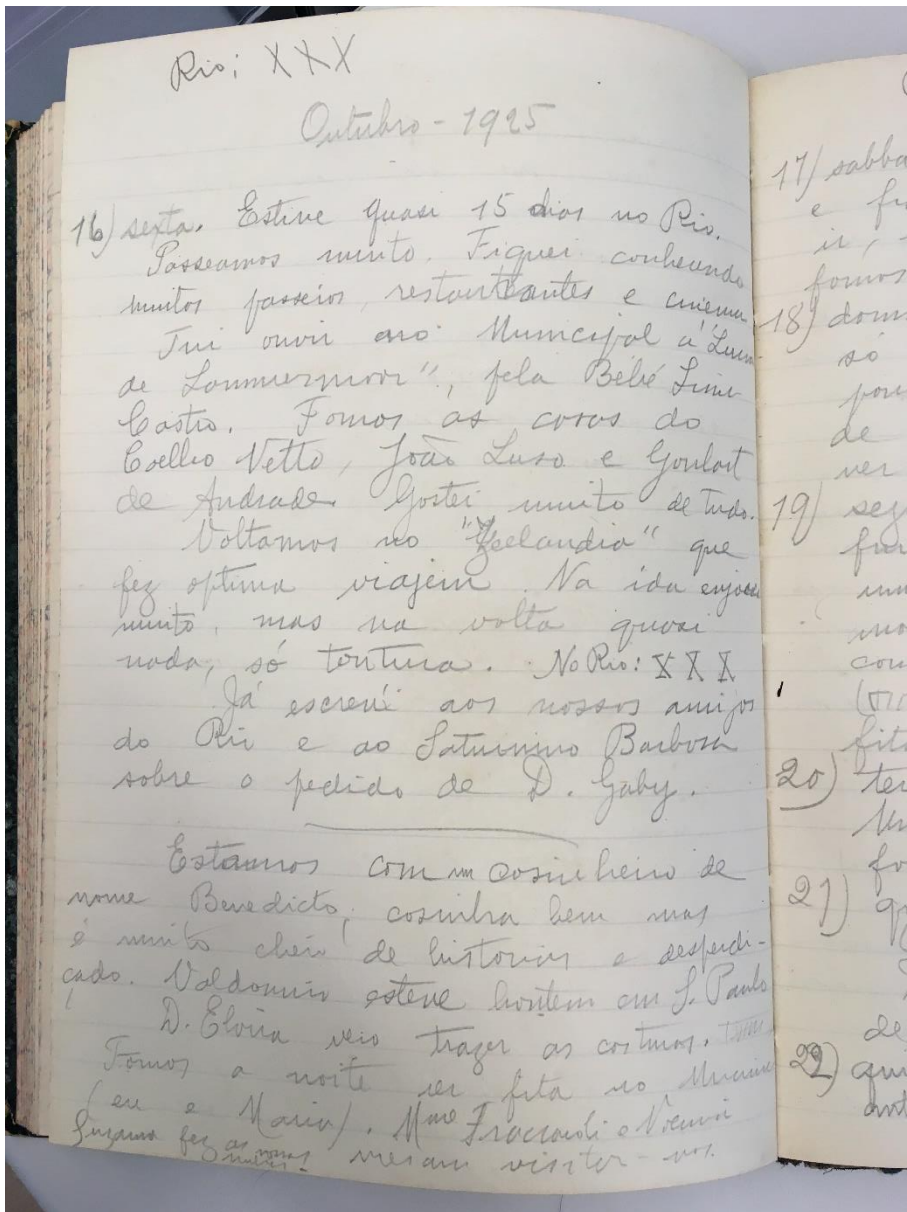 Rio: XXX
Outubro - 1925
16) sexta. Estive quasi 15 dias no Rio.
Passeamos muito. Fiquei conhecendo
muitos passeios, restaurantes e cinema
Fui ouvir no Municipal a "Lucia
de Lammermoor", pela Bébé Lima
Castro. Fomos as casas do
Coelho Netto, João Luso e Goulart
de Andrade. Gostei muito de tudo.
Voltamos no "Zeelandia" que
fez optima viajem. Na ida enjoei
muito, mas na volta quasi
nada, só tontura. No Rio: XXX
Já escrevi aos nossos amigos
do Rio e ao Saturnino Barbosa
sobre o pedido de D. Gaby.
Estamos com um cosinheiro de
nome Benedicto; cosinha bem mas
é muito cheio de historias e desperdi-
çado. Valdomiro esteve hontem em S. Paulo
D. Elvira veio trazer as costuras.
Fomos a noite ver fita no
(eu e Maria). Mme e
Suzana fez as nossas vieram visitar-nos.
17) sabba
e
ir,
fomos
18) dom
só
pou
de
ver
19) seg
fita
20) ter
fo
21) q
de
22) qui